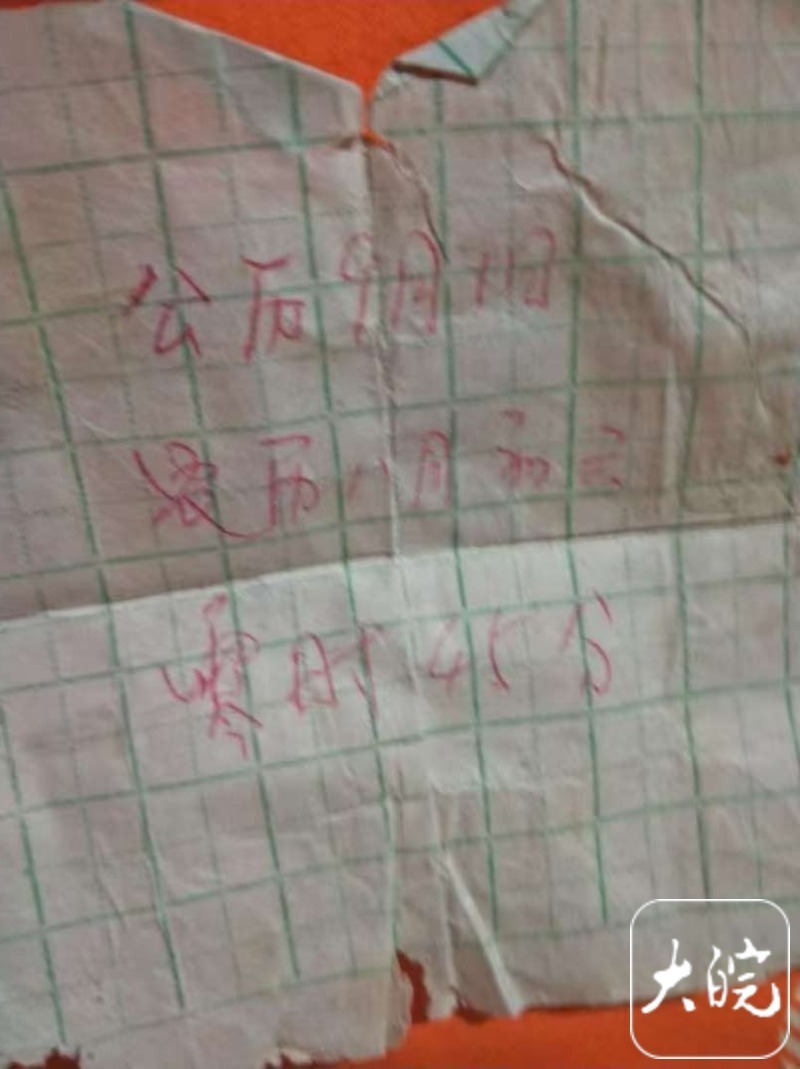 公历9月11日
农历八月初六
零时45分
大皖